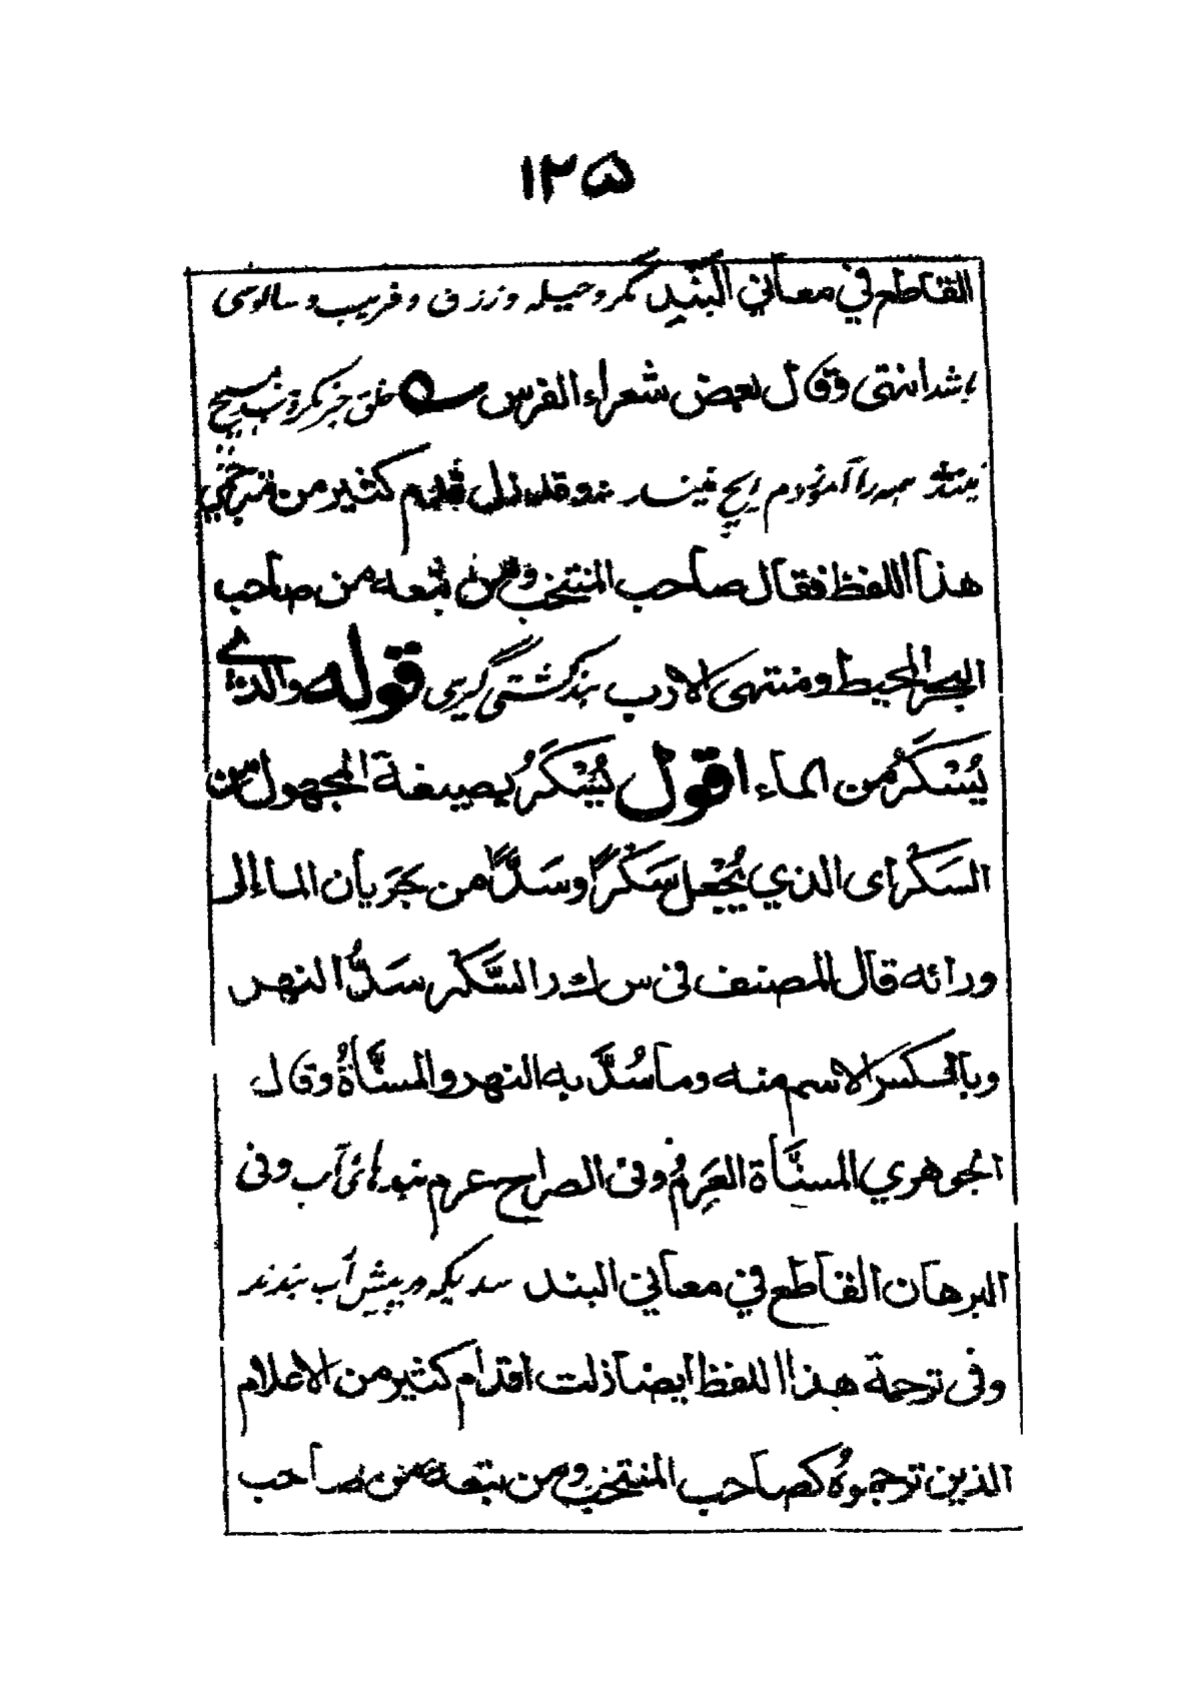 ١٢۵
القاطع في معاني البَنْدِ مكر وحيله وزرق وفريب وسالوسى
باشد انتهى وقال بعض شعراء الفرس خلق
همه را آزمودم هيچ وقد زل قدم كثير من مترجمي
هذا اللفظ فقال صاحب المنتخب ومن تبعه من صاحب
البحر المحيط ومنتهى الارب بند كشتى گيرى قوله والذي
يُسْكَرُ من الماء اقول يُسْكَرُ بصيغة المجهول من
السَكْر اى الذي يُجْعل سَكْرًا وسَدًّا من جَرَيان الماء الى
ورائه قال المصنف فى س ك ر السَّكْر سَدُّ النهر
وبالكسر الاسم منه وما سُدَّ به النهر والمسنَّاةُ وقال
الجوهري المسنَّاة العَرِمُ وفى الصراح عرم بندهائ آب وفى
البرهان القاطع في معاني البند سديكه در پيش آب بندند
وفى ترجمة هذا اللفظ ايضا زلت اقدام كثير من الاعلام
الذين ترجموهُ كصاحب المنتخب ومن تبعه من صاحب